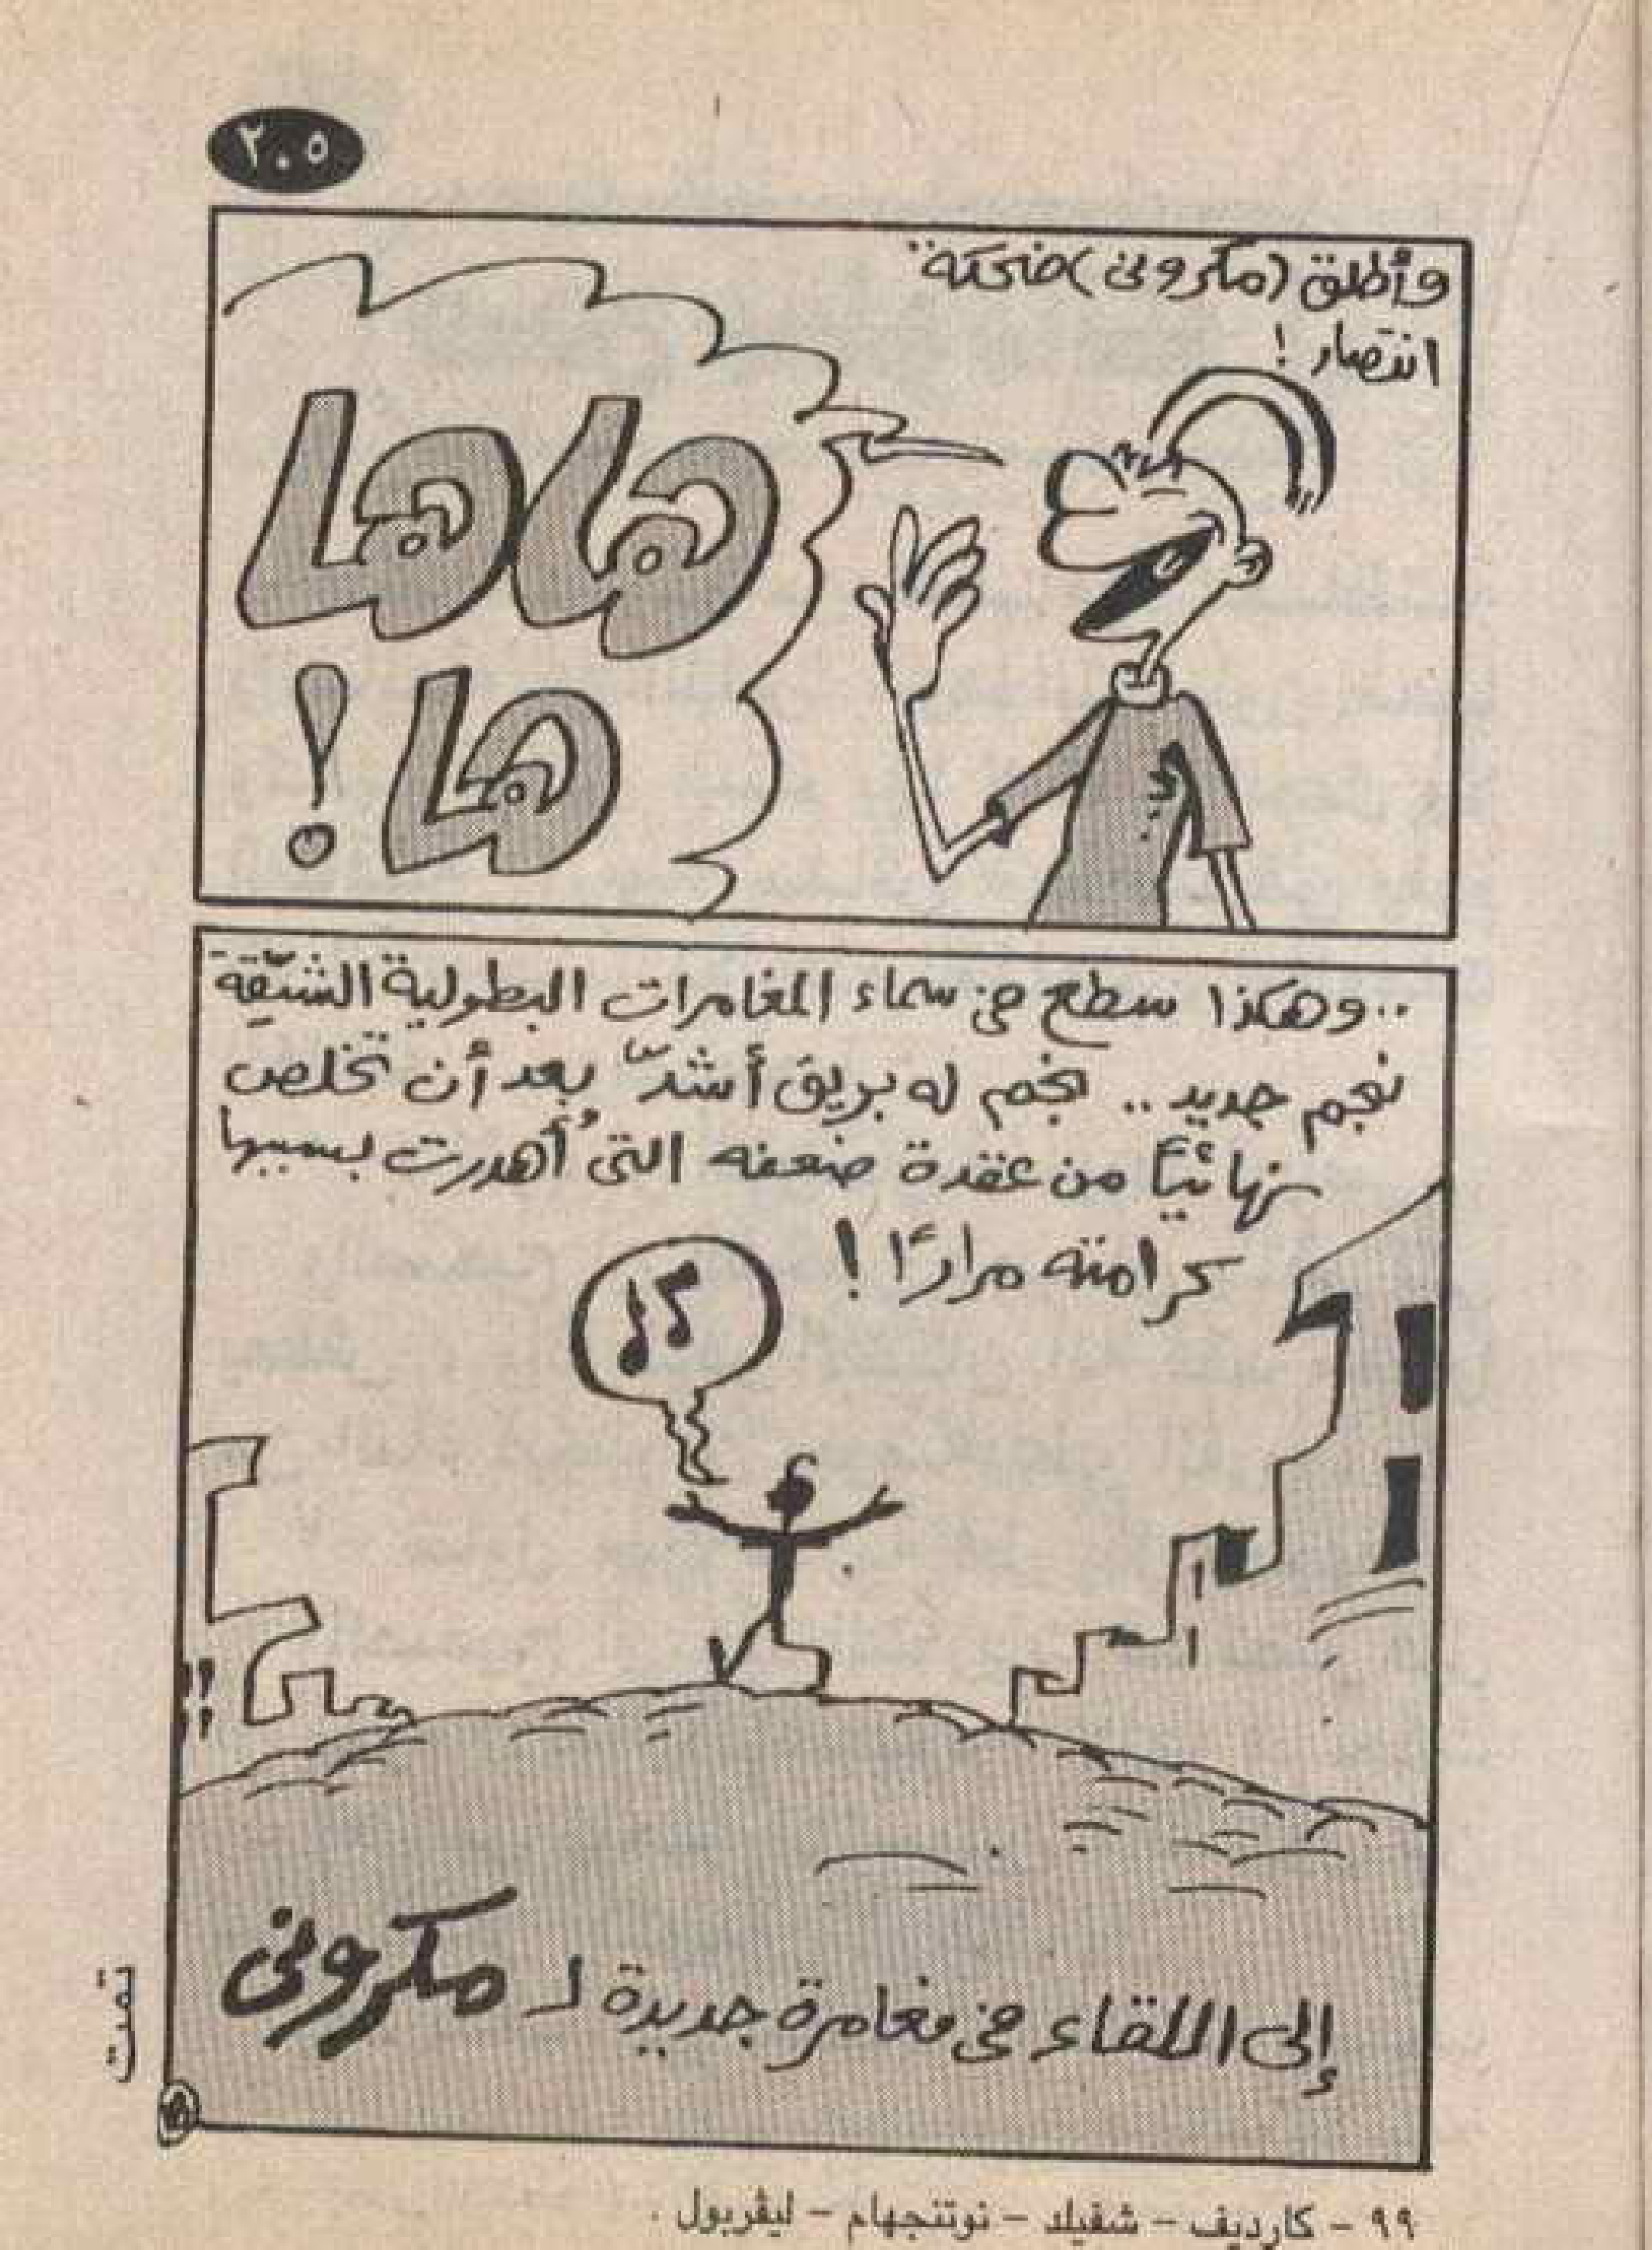 ٢٠٥
وأطلق (مكرونى) ضحكة
انتصار !
هاها
ها !
.. وهكذا سطع فى سماء المغامرات البطولية الشيّقة
نجم جديد .. نجم له بريق أشدّ بعد أن تخلص
نهائيًا من عقدة ضعفه التى أُهدرت بسببها
كرامته مرارًا !
إلى اللقاء فى مغامرة جديدة لـ مكرونى
تمت
٩٩ - كارديف - شفيلد - نوتنجهام - ليڤربول .